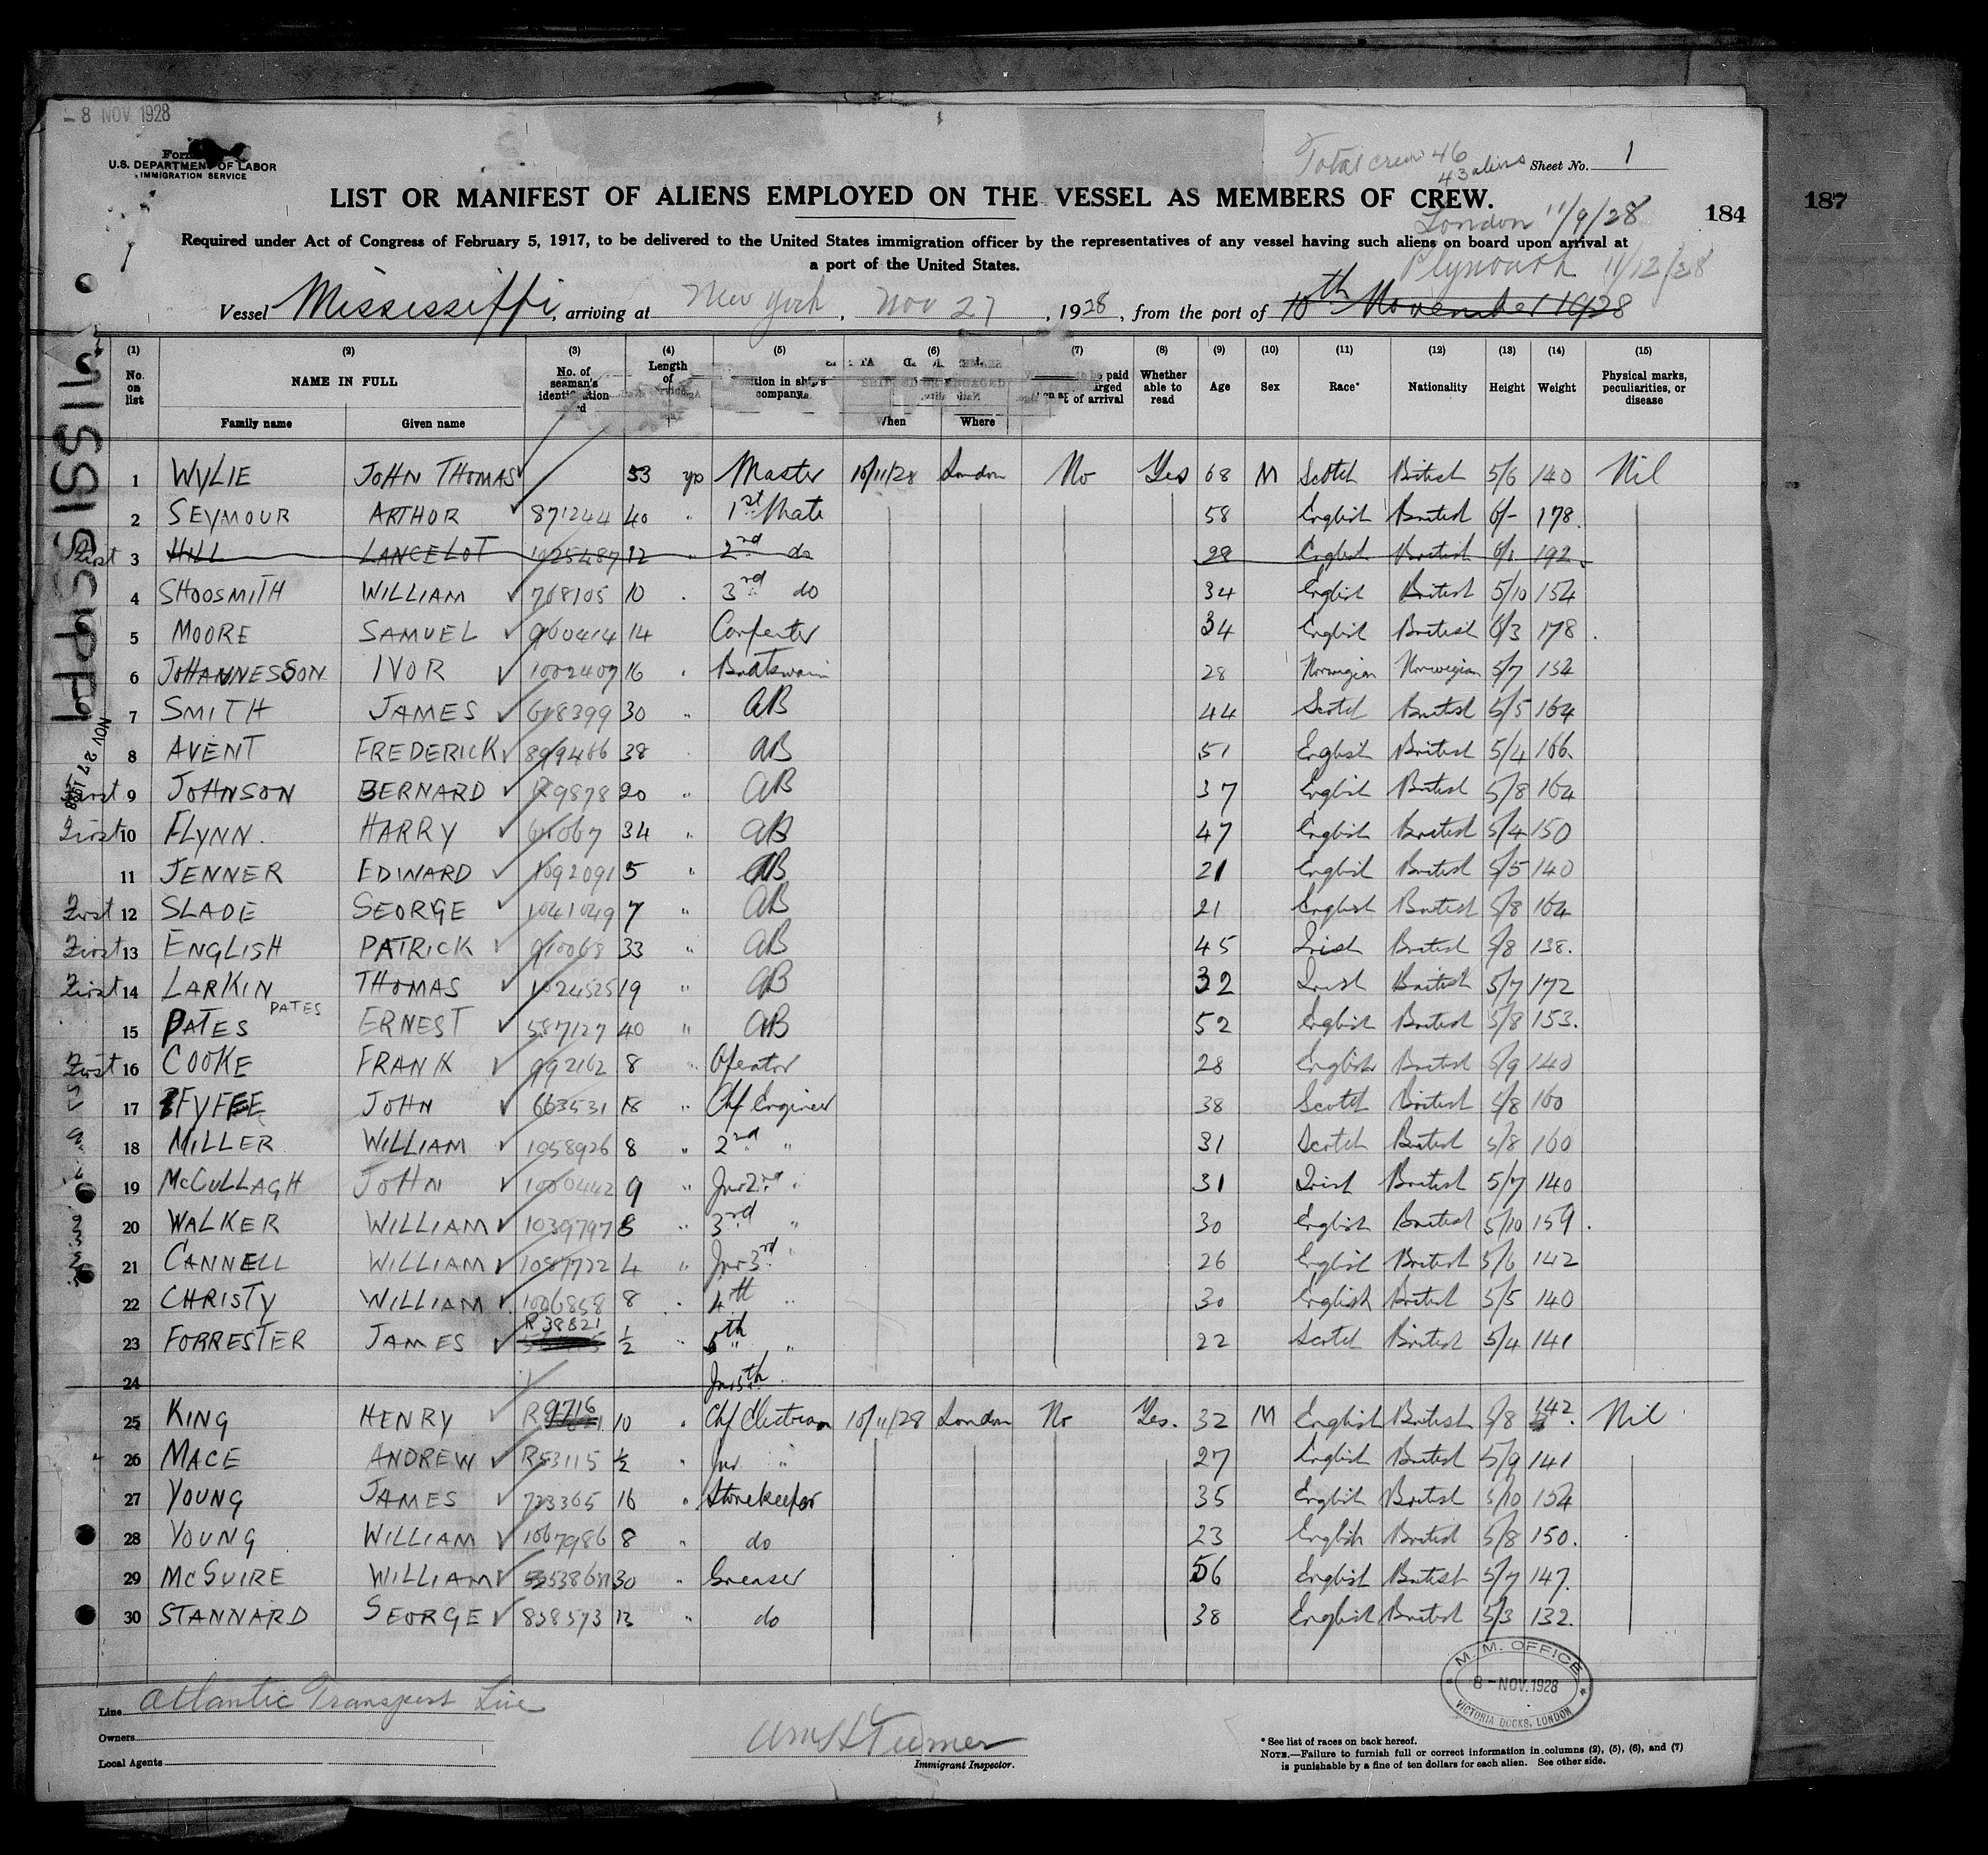 - 8 NOV 1928
Form
U.S. DEPARTMENT OF LABOR
IMMIGRATION SERVICE
Total crew 46
43 aliens
Sheet No. 1
LIST OR MANIFEST OF ALIENS EMPLOYED ON THE VESSEL AS MEMBERS OF CREW.
184
187
London 11/9/28
Required under Act of Congress of February 5, 1917, to be delivered to the United States immigration officer by the representatives of any vessel having such aliens on board upon arrival at
a port of the United States.
Plymouth 11/12/28
Vessel Mississippi, arriving at New York, Nov 27, 1928, from the port of 10th November 1928
MISSISSIPPI
NOV 27 1928
(1) (2) (3) (4) (5) (6) (7) (8) (9) (10) (11) (12) (13) (14) (15)
No. on list NAME IN FULL No. of seaman's Length of company When Where of arrival Whether able to read Age Sex Race* Nationality Height Weight Physical marks, peculiarities, or disease
Family name Given name
1 WYLIE JOHN THOMAS 53 yrs Master 10/11/28 London No Yes 68 M Scotch British 5/6 140 Nil
2 SEYMOUR ARTHOR 871244 40 " 1st Mate 58 English British 6/- 178.
First 3 HILL LANCELOT 1025487 12 " 2nd do 28 English British 6/1 192
4 SHOOSMITH WILLIAM 768105 10 . 3rd do 34 English British 5/10 154
5 MOORE SAMUEL 960414 14 Carpenter 34 English British 6/3 178.
6 JOHANNESSON IVOR 1002407 16 " Boatswain 28 Norwegian Norwegian 5/7 134
7 SMITH JAMES 618399 30 " AB 44 Scotch British 5/5 164
8 AVENT FREDERICK 899466 38 AB 51 English British 5/4 166
First 9 JOHNSON BERNARD R9878 20 " AB 37 English British 5/8 164
First 10 FLYNN. HARRY 34 " AB 47 English British 5/4 150
11 JENNER EDWARD 1092091 5 " AB 21 English British 5/5 140
First 12 SLADE GEORGE 1041049 7 " AB 21 English British 5/8 164
First 13 ENGLISH PATRICK 910068 33 " AB 45 Irish British 5/8 138.
First 14 LARKIN THOMAS 1024525 19 " AB 32 Irish British 5/7 172
PATES
15 PATES ERNEST 587127 40 " AB 52 English British 5/8 153.
First 16 COOKE FRANK 992162 8 " Operator 28 English British 5/9 140
17 FYFEE JOHN 663531 18 " Chf Engineer 38 Scotch British 5/8 160
18 MILLER WILLIAM 1058926 8 " 2nd " 31 Scotch British 5/8 160
19 McCULLAGH JOHN 1000442 9 " Jnr 2nd " 31 Irish British 5/7 140
20 WALKER WILLIAM 1039797 8 " 3rd " 30 English British 5/10 159.
21 CANNELL WILLIAM 1087722 4 " Jnr 3rd " 26 English British 5/6 142
22 CHRISTY WILLIAM 1006858 8 " 4th " 30 English British 5/5 140
23 FORRESTER JAMES R 38821 ½ " 5th " 22 Scotch British 5/4 141
24 Jnr 5th "
25 KING HENRY R 9716 10 " Chf Electrician 10/11/28 London No Yes. 32 M English British 5/8 142. Nil
26 MACE ANDREW R53115 ½ " Jnr " 27 English British 5/9 141
27 YOUNG JAMES 723365 16 " Storekeeper 35 English British 5/10 154
28 YOUNG WILLIAM 1067986 8 " do 23 English British 5/8 150.
29 McGUIRE WILLIAM 30 " Greaser 56 English British 5/7 147.
30 STANNARD GEORGE 858573 13 " do 38 English British 5/3 132.
M. M. OFFICE
8 - NOV. 1928
VICTORIA DOCKS, LONDON
Line Atlantic Transport Line
Owners
Local Agents
Immigrant Inspector.
* See list of races on back hereof.
NOTE.—Failure to furnish full or correct information in columns (2), (5), (6), and (7)
is punishable by a fine of ten dollars for each alien. See other side.